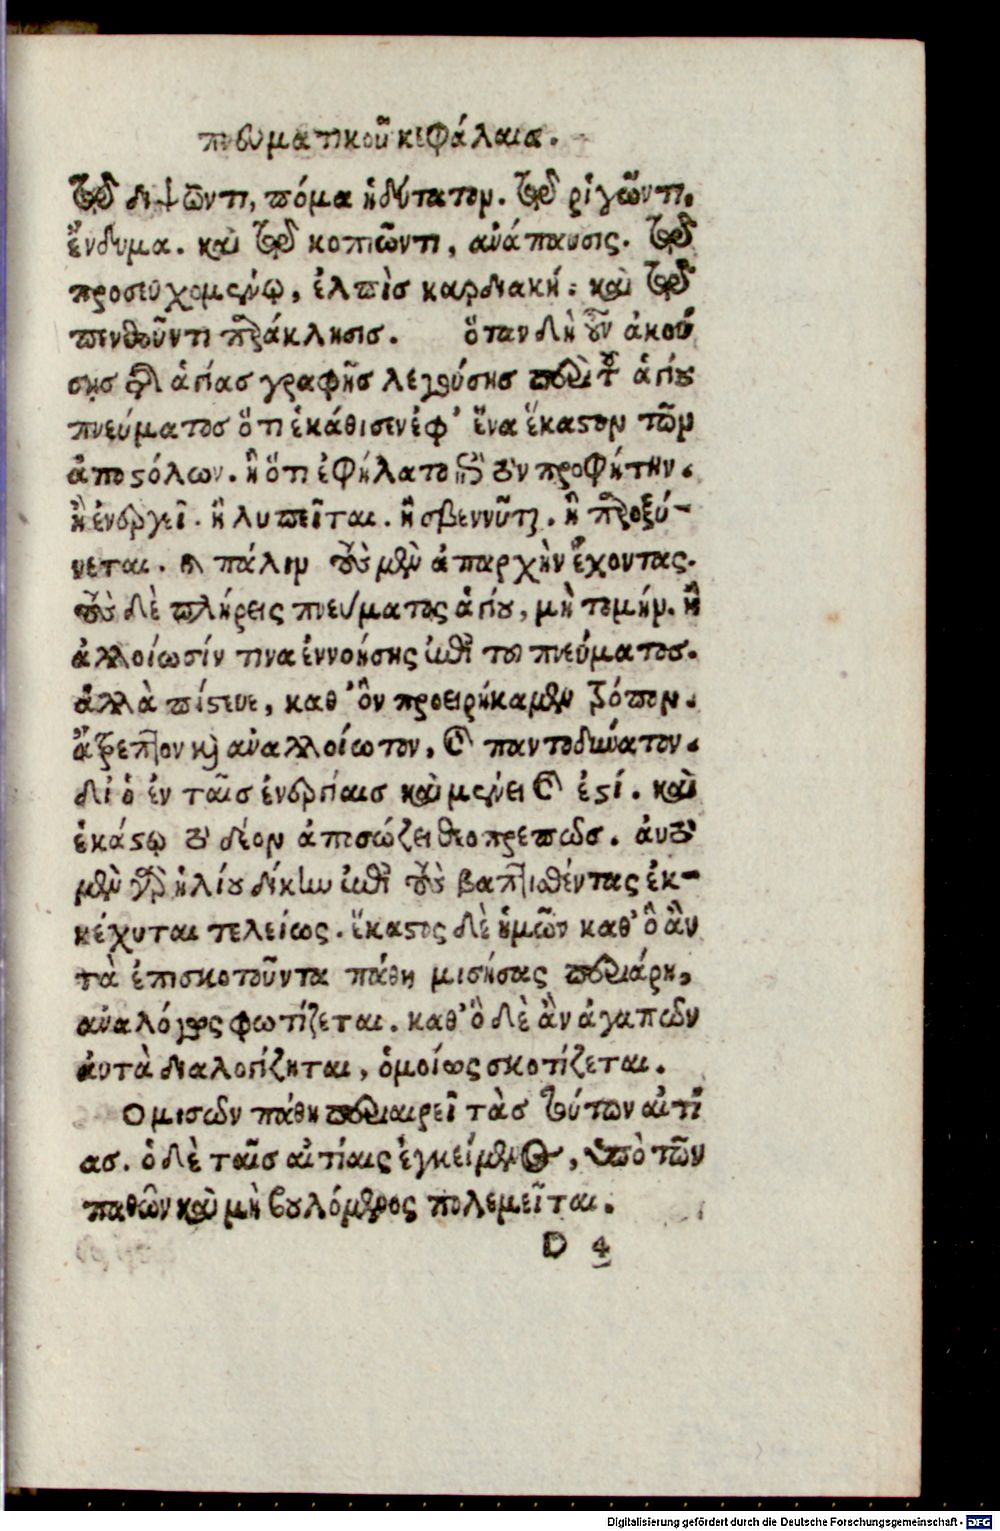 πνευματικοῦ κεφάλαια.
τῷ διψῶντι, πόμα ἡδύτατον. τῷ ῥιγῶντι,
ἔνδυμα. καὶ τῷ κοπιῶντι, ἀνάπαυσις. τῷ
προσευχομένῳ, ἐλπὶσ καρδιακή. καὶ τῷ
πενθοῦντι παράκλησις. ὅταν δὴ οὖν ἀκού
σῃς τῆς ἁγίας γραφῆσ λεγούσησ περὶ τοῦ ἁγίου
πνεύματοσ ὅτι ἐκάθισεν ἐφ' ἕνα ἕκαστον τῶν
ἀποστόλων. ἢ ὅτι ἐφήλατο ἐπὶ τὸν προφήτην.
ἢ ἐνεργεῖ. ἢ λυπεῖται. ἢ σβεννῦται. ἢ παροξύ-
νεται. καὶ πάλιν τοὺς μὲν ἀπαρχὴν ἔχοντας.
τοὺς δὲ πλήρεις πνεύματος ἁγίου, μὴ τομήν. ἢ
ἀλλοίωσίν τινα ἐννοήσῃς ἐπὶ τοῦ πνεύματοσ.
ἀλλὰ πίστευε, καθ' ὃν προειρήκαμεν τρόπον.
ἄτρεπτον καὶ ἀναλλοίωτον, καὶ παντοδύνατον.
διὸ ἐν ταῖσ ἐνεργείαισ καὶ μένει ὅ ἐστί. καὶ
ἑκάστῳ τὸ δέον ἀποσώζει θεοπρεπῶς. αὐτὸ
μὲν γὰρ ἡλίου δίκην ἐπὶ τοὺς βαπτισθέντας ἐκ-
κέχυται τελείως. ἕκαστος δὲ ἡμῶν καθ' ὃ ἂν
τὰ ἐπισκοτοῦντα πάθη μισήσας περιάρῃ,
ἀναλόγως φωτίζεται. καθ' ὃ δὲ ἂν ἀγαπῶν
αὐτὰ διαλογίζηται, ὁμοίως σκοτίζεται.
Ο μισῶν πάθη περιαιρεῖ τὰσ τούτων αἰτί
ασ. ὁ δὲ ταῖσ αἰτίαις ἐγκείμενος, ὑπὸ τῶν
παθῶν καὶ μὴ βουλόμενος πολεμεῖται.
D 4
Digitalisierung gefördert durch die Deutsche Forschungsgemeinschaft - DFG